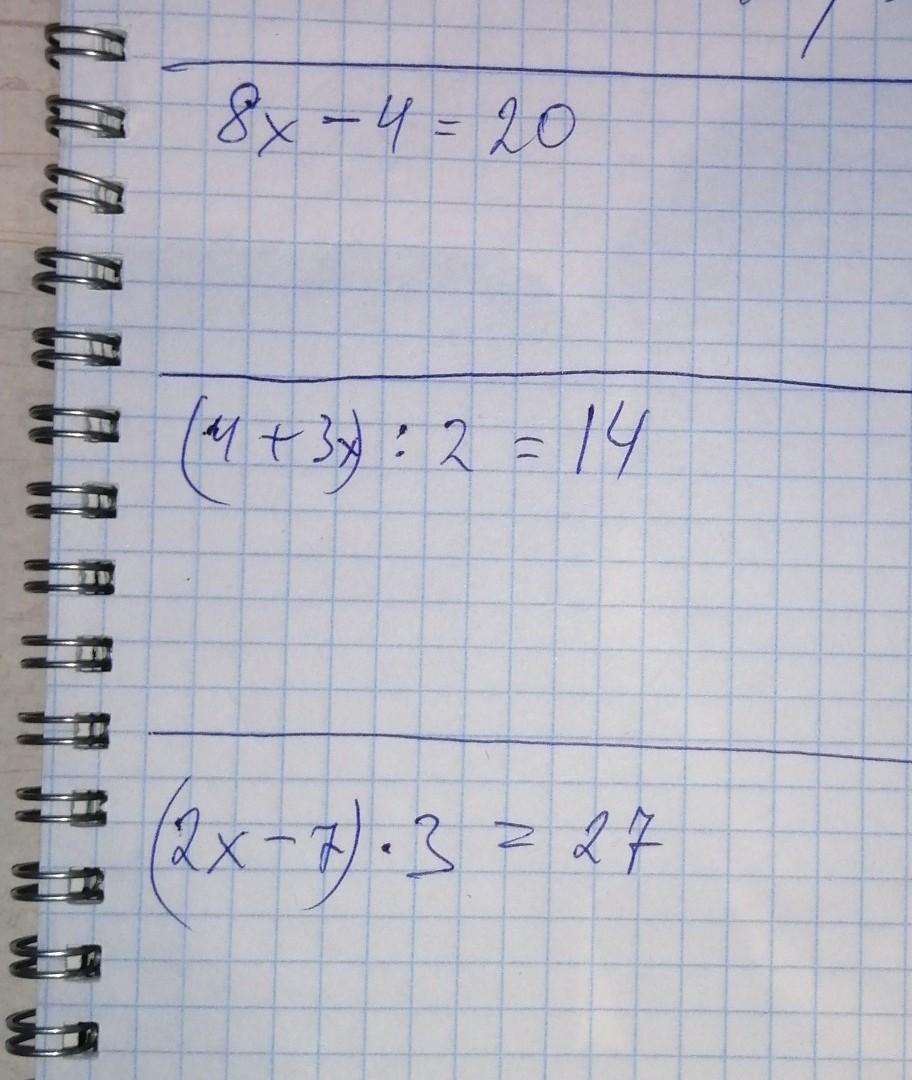 8x - 4 = 20
(4 + 3x) : 2 = 14
(2x - 7) · 3 = 27